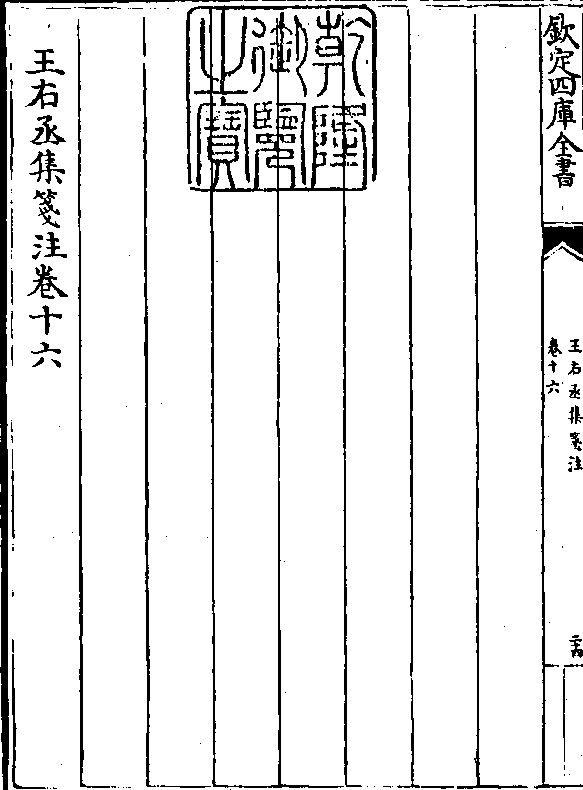 欽定四庫全書
王右丞集箋注
卷十六
乾隆
御覽
之寶
王右丞集箋注卷十六